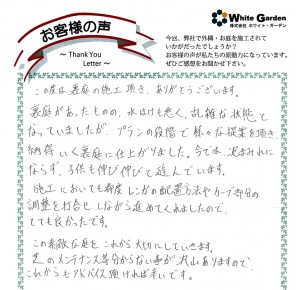 お客様の声
～ Thank You
Letter ～
White Garden
株式会社 ホワイト・ガーデン
今回、弊社で外構・お庭を施工されて
いかがだったでしょうか？
お客様の声が私たちの原動力になっています。
ぜひご感想をお聞かせ下さい。
この度は裏庭の施工頂き、ありがとうございます。
裏庭があったものの、水はけも悪く、乱雑な状態と
なっていましたが、プランの段階で様々な提案を頂き、
納得いく裏庭に仕上がりました。今では、泥まみれに
ならず、子供も伸び伸びと遊んでいます。
施工においても都度レンガの配置方法やカーブ部分の
調整も打合せしながら進めてくれましたので、
とても良かったです。
この素敵な庭をこれから大切にしていきます。
芝のメンテナンス等分からない事が沢山ありますので、
これからもアドバイス頂ければ幸いです。